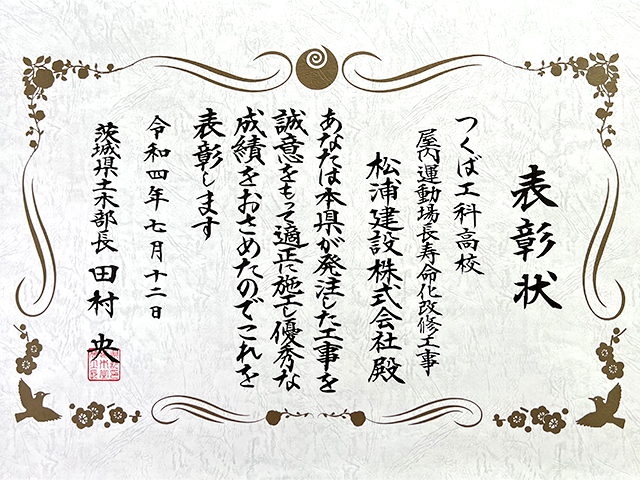 表彰状
つくば工科高校
屋内運動場長寿命化改修工事
松浦建設株式会社殿
あなたは本県が発注した工事を
誠意をもって適正に施工し優秀な
成績をおさめたのでこれを
表彰します
令和四年七月十二日
茨城県土木部長 田村 央